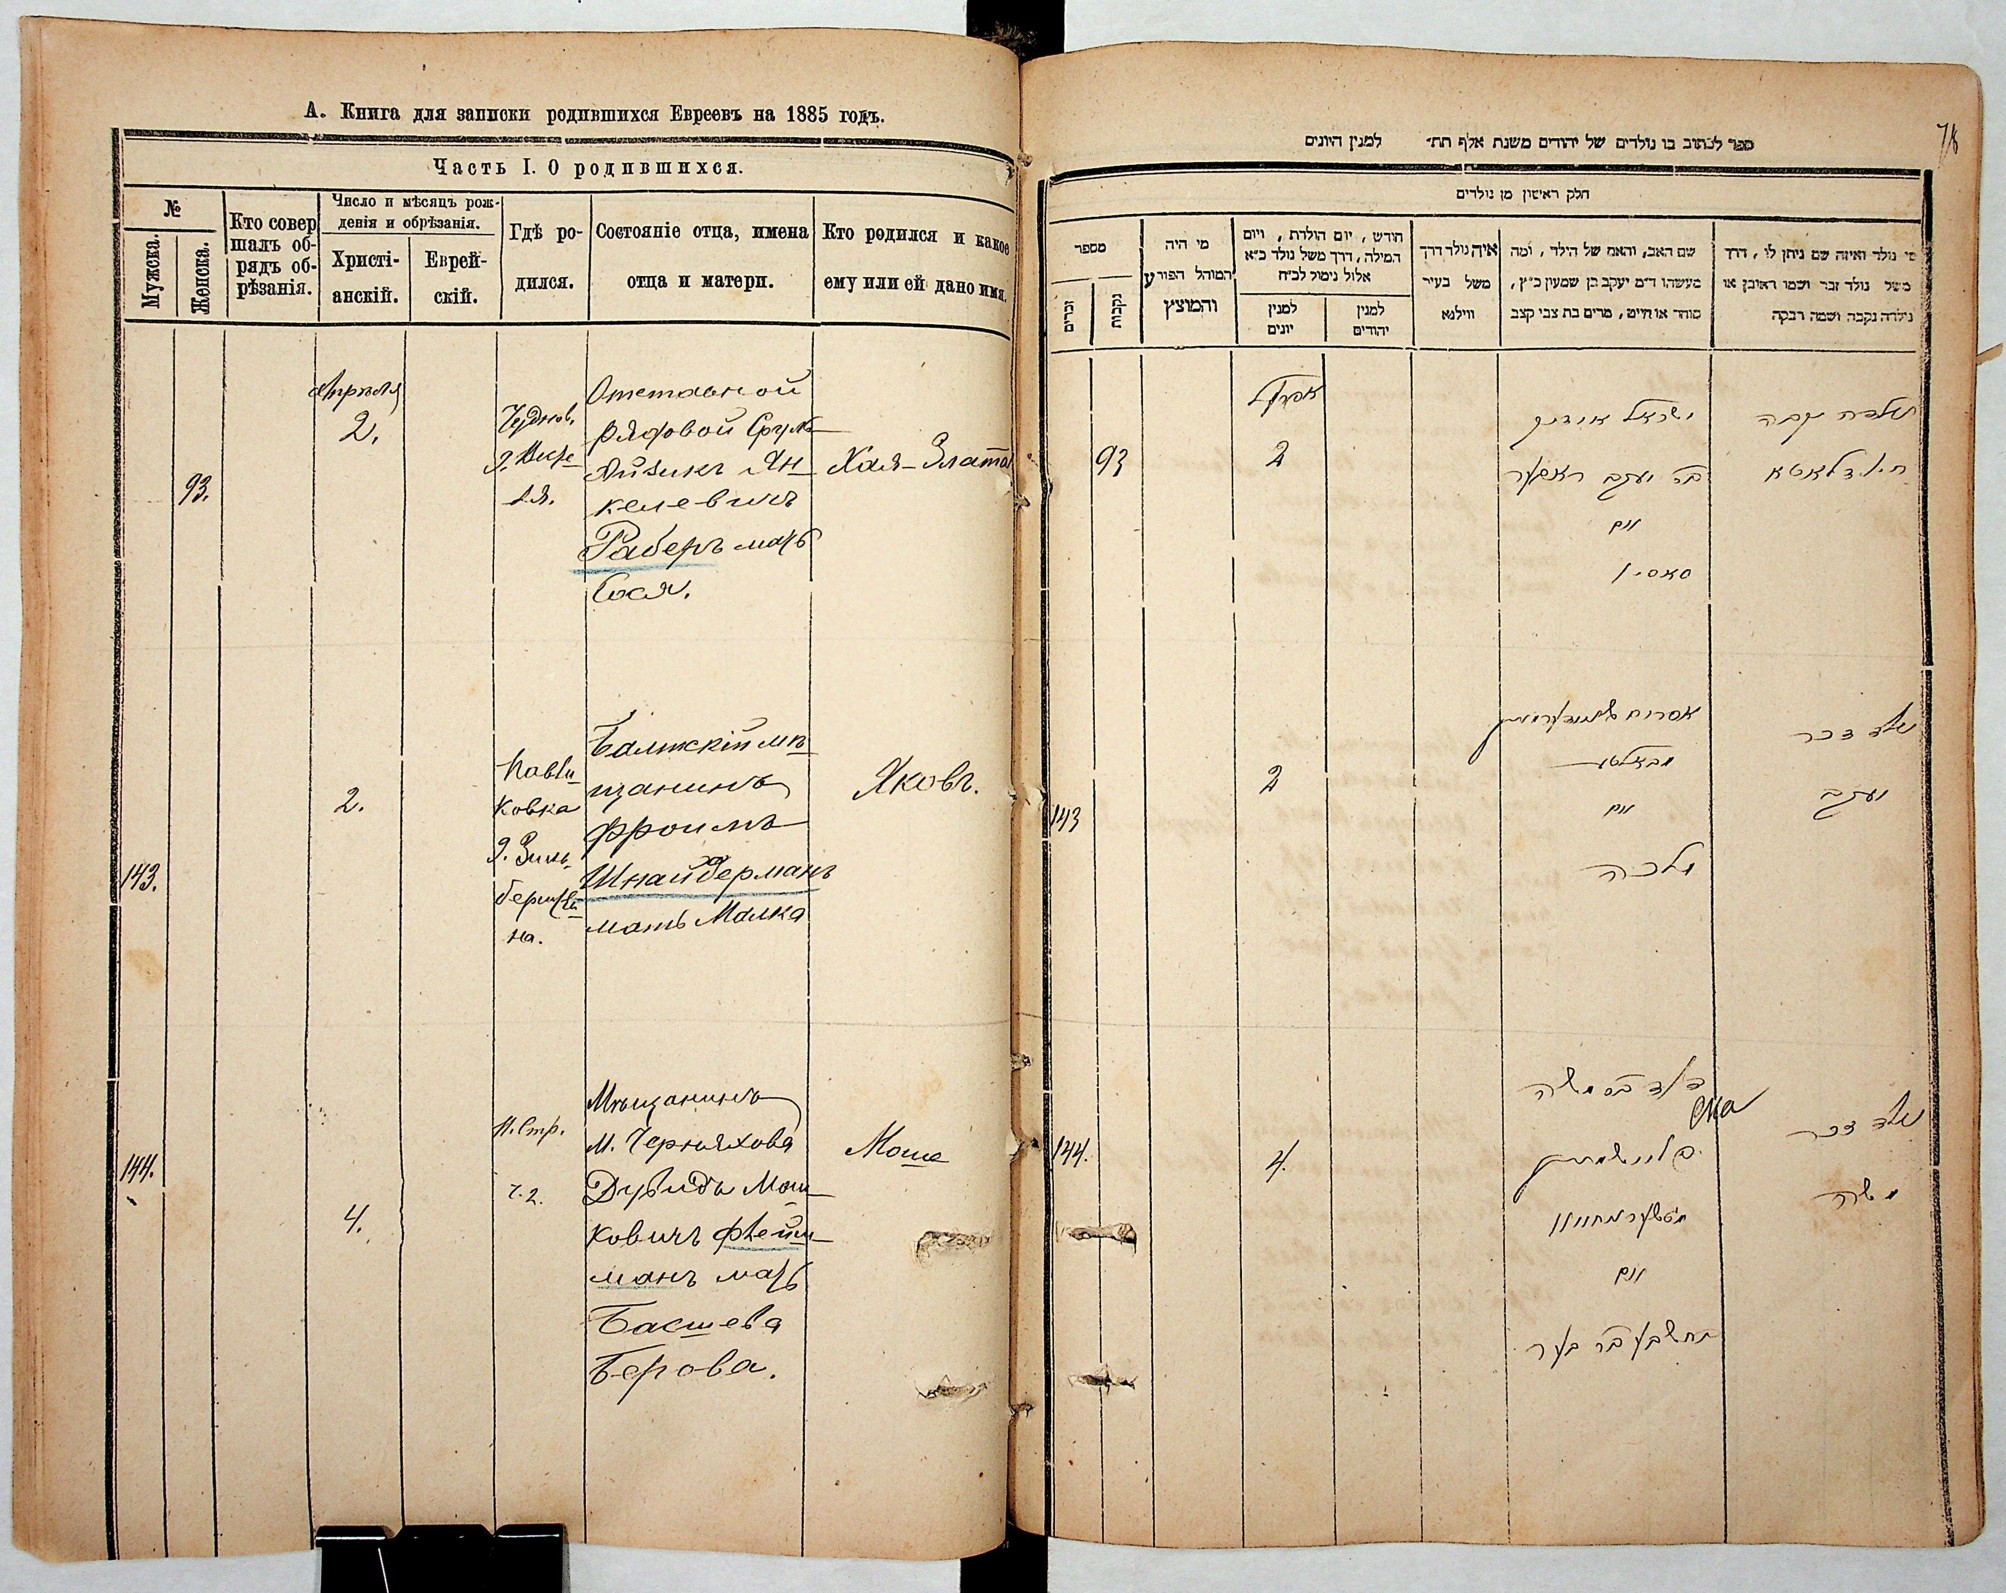 А. Книга для записки родившихся Евреевъ на 1885 годъ.
Часть I. О родившихся.
№
Мужска.
Женска.
Кто совер
шалъ об-
рядъ об-
рѣзанія.
Число и мѣсяцъ рож-
денія и обрѣзанія.
Христі-
анскій.
Еврей-
скій.
Гдѣ ро-
дился.
Состояніе отца, имена
отца и матери.
Кто родился и какое
ему или ей дано имя.
93.
Апрѣля
2.
Отставной
рядовой Сруль
Айзикъ Ян
келевичъ
Раберъ мать
Бася.
Хая-Злата
143.
2.
ковка
Балтскій мѣ
щанинъ
Фроимъ
Шнайдерманъ
мать Малка
Яковъ.
144.
4.
ч. 2.
Мѣщанинъ
м. Черняхова
Дувидъ Мош
ковичъ Флейш
манъ мать
Басшева
Берова.
Моше
78
ספר לכתוב בו נולדים של יהודים משנת אלף תת״ למנין היונים
חלק ראשון מן נולדים
מספר
זכרים
נקבות
מי היה
המוהל הפורע
והמוצץ
חודש, יום הולדת, ויום
המילה, דרך משל נולד כ״א
אלול נימול לכ״ח
למנין
יונים
למנין
יהודים
איה נולד דרך
משל בעיר
ווילנא
שם האב, והאם של הילד, ומה
מעשהו ד״מ יעקב בן שמעון כ״ץ,
סוחר או חייט, מרים בת צבי קצב
מי נולד ואיזה שם ניתן לו, דרך
משל נולד זכר ושמו ראובן או
נולדה נקבה ושמה רבקה
93
אפריל
2
ישראל אייזיק
בר יעקב ראבער
ואם
נולדה נקבה
חי' זלאטא
143
2
אפרים שניידערמאן
ואם
מלכה
נולד זכר
יעקב
144.
4.
דוד בר משה
פליישמאן
ואם
בתשבע בר בער
נולד זכר
משה